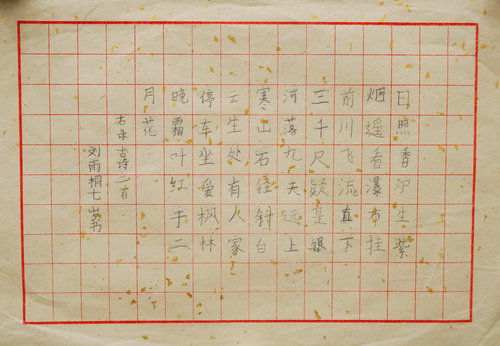 日照香炉生紫
烟遥看瀑布挂
前川飞流直下
三千尺疑是银
河落九天远上
寒山石径斜白
云生处有人家
停车坐爱枫林
晚霜叶红于二
月花
右录古诗二首
刘雨桐七岁书